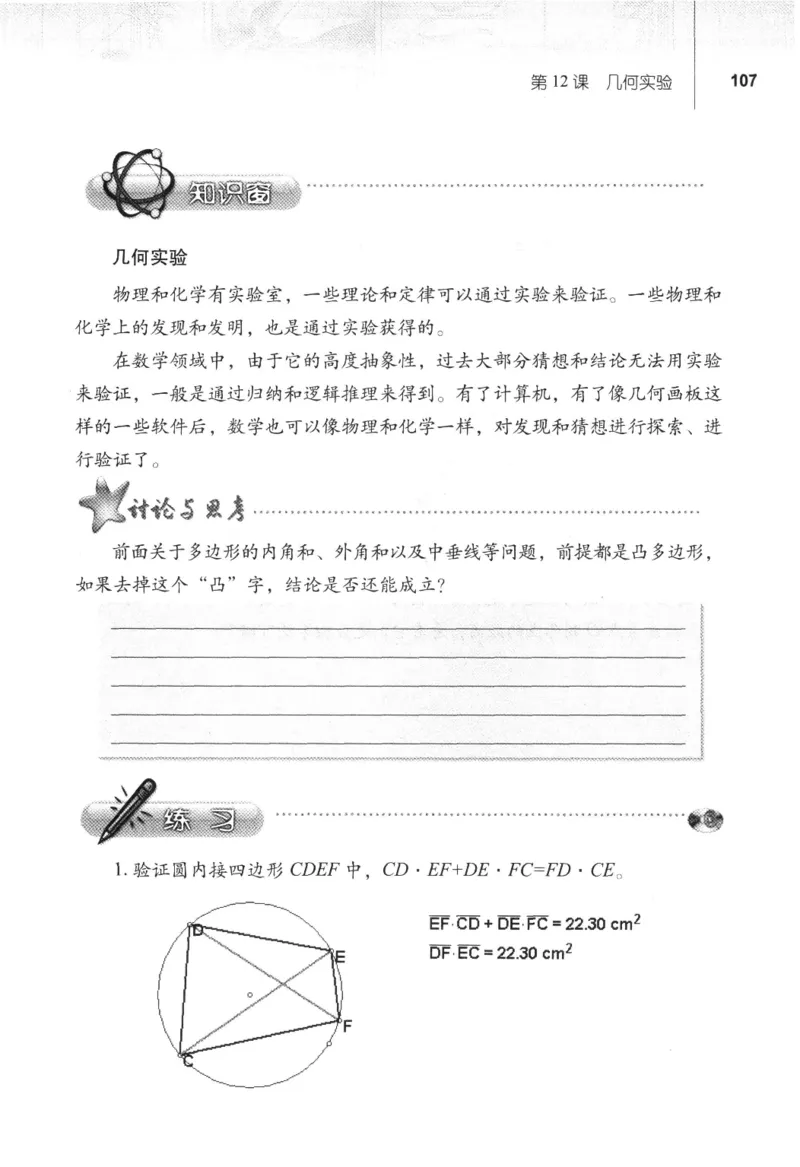 第12课 几何实验 107
知识窗
几何实验
物理和化学有实验室，一些理论和定律可以通过实验来验证。一些物理和
化学上的发现和发明，也是通过实验获得的。
在数学领域中，由于它的高度抽象性，过去大部分猜想和结论无法用实验
来验证，一般是通过归纳和逻辑推理来得到。有了计算机，有了像几何画板这
样的一些软件后，数学也可以像物理和化学一样，对发现和猜想进行探索、进
行验证了。
讨论与思考
前面关于多边形的内角和、外角和以及中垂线等问题，前提都是凸多边形，
如果去掉这个“凸”字，结论是否还能成立?
练习
1. 验证圆内接四边形 CDEF 中，CD·EF+DE·FC=FD·CE。
EF·CD + DE·FC = 22.30 cm²
DF·EC = 22.30 cm²
D
E
F
C